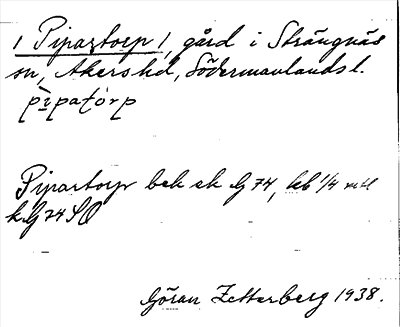 1 Pipartorp 1, gård i Strängnäs
sn, Åkers hd, Södermanlands l.
pìpatórp
Pipartorp bek ek G 74, kb 1/4 mtl
k. G 74 SO
Göran Zetterberg 1938.